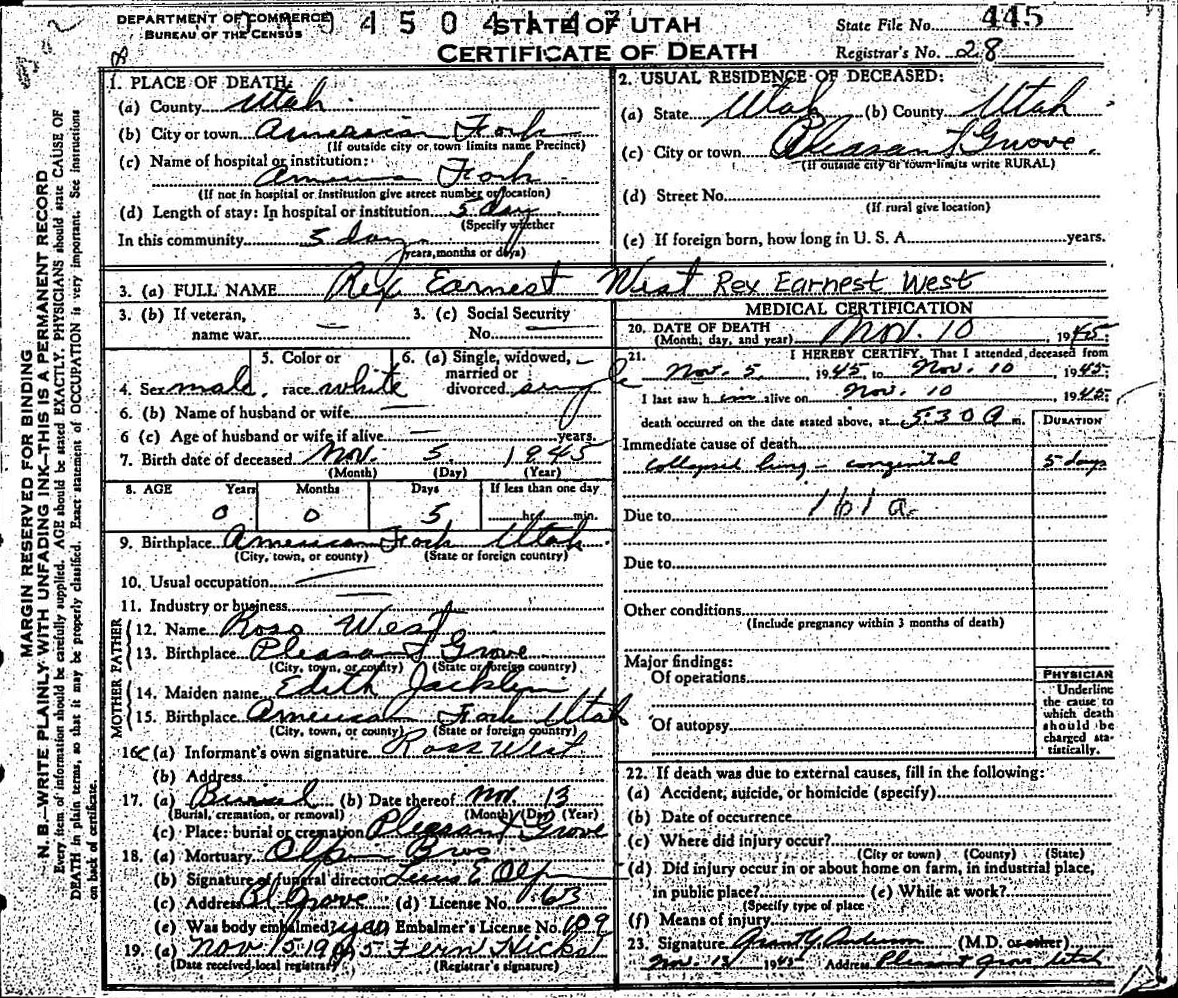 DEPARTMENT OF COMMERCE
BUREAU OF THE CENSUS
STATE OF UTAH
CERTIFICATE OF DEATH
State File No. 445
Registrar's No. 28
MARGIN RESERVED FOR BINDING
N. B.—WRITE PLAINLY WITH UNFADING INK—THIS IS A PERMANENT RECORD
Every item of information should be carefully supplied. AGE should be stated EXACTLY. PHYSICIANS should state CAUSE OF
DEATH in plain terms, so that it may be properly classified. Exact statement of OCCUPATION is very important. See instructions
on back of certificate.
1. PLACE OF DEATH:
(a) County Utah
(b) City or town American Fork
(If outside city or town limits name Precinct)
(c) Name of hospital or institution:
Fork
(If not in hospital or institution give street number or location)
(d) Length of stay: In hospital or institution 5 day
(Specify whether
In this community 5 days
years, months or days)
2. USUAL RESIDENCE OF DECEASED:
(a) State Utah (b) County Utah
(c) City or town Pleasant Grove
(If outside city or town limits write RURAL)
(d) Street No.
(If rural give location)
(e) If foreign born, how long in U. S. A. years.
3. (a) FULL NAME Rex Earnest West Rex Earnest West
3. (b) If veteran,
name war —
3. (c) Social Security
No. —
4. Sex male
5. Color or
race white
6. (a) Single, widowed,
married or
divorced single
6. (b) Name of husband or wife —
6 (c) Age of husband or wife if alive — years.
7. Birth date of deceased Nov. 5 1945
(Month) (Day) (Year)
8. AGE Years Months Days If less than one day
0 0 5 hr. min.
9. Birthplace American Fork Utah
(City, town, or county) (State or foreign country)
10. Usual occupation —
11. Industry or business —
FATHER
12. Name Ross West
13. Birthplace Pleasant Grove
(City, town, or county) (State or foreign country)
MOTHER
14. Maiden name Edith Jacklin
15. Birthplace American Fork Utah
(City, town, or county) (State or foreign country)
16. (a) Informant's own signature Ross West
(b) Address
17. (a) Burial (b) Date thereof Nov. 13
(Burial, cremation, or removal) (Month) (Day) (Year)
(c) Place: burial or cremation Pleasant Grove
18. (a) Mortuary Olpin Bros
(b) Signature of funeral director E Olpin
(c) Address Pl Grove (d) License No. 163
(e) Was body embalmed? Embalmer's License No. 109
19. (a) Nov 15 1945 Fern Hicks
(Date received local registrar) (Registrar's signature)
MEDICAL CERTIFICATION
20. DATE OF DEATH
(Month, day, and year) Nov. 10 1945
21. I HEREBY CERTIFY, That I attended deceased from
Nov. 5 1945 to Nov. 10 1945
I last saw him alive on Nov. 10 1945
death occurred on the date stated above, at 5:30 A m.
DURATION
Immediate cause of death
collapsed lung – congenital 5 days
Due to 161 a
Due to
Other conditions
(Include pregnancy within 3 months of death)
Major findings:
Of operations
Of autopsy
PHYSICIAN
Underline
the cause to
which death
should be
charged sta-
tistically.
22. If death was due to external causes, fill in the following:
(a) Accident, suicide, or homicide (specify)
(b) Date of occurrence
(c) Where did injury occur?
(City or town) (County) (State)
(d) Did injury occur in or about home on farm, in industrial place,
in public place? (e) While at work?
(Specify type of place
(f) Means of injury
23. Signature Grant Y. Anderson (M.D. or other)
Nov. 13 1945 Address Pleasant Grove Utah